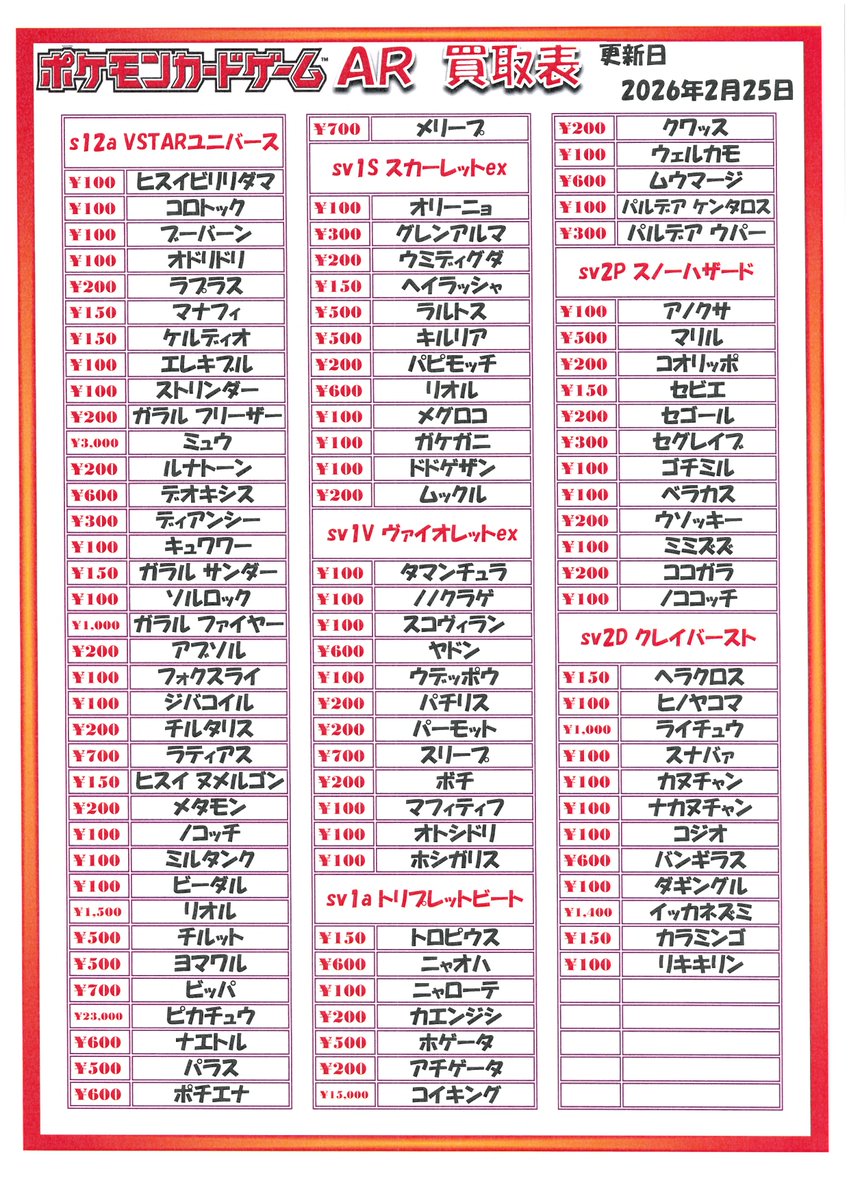 ポケモンカードゲーム™ AR 買取表 更新日
2026年2月25日
s12a VSTARユニバース
¥100 ヒスイビリリダマ
¥100 コロトック
¥100 ブーバーン
¥100 オドリドリ
¥200 ラプラス
¥150 マナフィ
¥150 ケルディオ
¥100 エレキブル
¥100 ストリンダー
¥200 ガラル フリーザー
¥3,000 ミュウ
¥200 ルナトーン
¥600 デオキシス
¥300 ディアンシー
¥100 キュワワー
¥150 ガラル サンダー
¥100 ソルロック
¥1,000 ガラル ファイヤー
¥200 アブソル
¥100 フォクスライ
¥100 ジバコイル
¥200 チルタリス
¥700 ラティアス
¥150 ヒスイ ヌメルゴン
¥200 メタモン
¥100 ノコッチ
¥100 ミルタンク
¥100 ビーダル
¥1,500 リオル
¥500 チルット
¥500 ヨマワル
¥700 ビッパ
¥23,000 ピカチュウ
¥600 ナエトル
¥500 パラス
¥600 ポチエナ
¥700 メリープ
sv1S スカーレットex
¥100 オリーニョ
¥300 グレンアルマ
¥200 ウミディグダ
¥150 ヘイラッシャ
¥500 ラルトス
¥500 キルリア
¥200 パピモッチ
¥600 リオル
¥100 メグロコ
¥100 ガケガニ
¥100 ドドゲザン
¥200 ムックル
sv1V ヴァイオレットex
¥100 タマンチュラ
¥100 ノノクラゲ
¥100 スコヴィラン
¥600 ヤドン
¥100 ウデッポウ
¥200 パチリス
¥200 パーモット
¥700 スリープ
¥200 ボチ
¥100 マフィティフ
¥100 オトシドリ
¥100 ホシガリス
sv1a トリプレットビート
¥150 トロピウス
¥600 ニャオハ
¥100 ニャローテ
¥200 カエンジシ
¥500 ホゲータ
¥200 アチゲータ
¥15,000 コイキング
¥200 クワッス
¥100 ウェルカモ
¥600 ムウマージ
¥100 パルデア ケンタロス
¥300 パルデア ウパー
sv2P スノーハザード
¥100 アノクサ
¥500 マリル
¥200 コオリッポ
¥150 セビエ
¥200 セゴール
¥300 セグレイブ
¥100 ゴチミル
¥100 ベラカス
¥200 ウソッキー
¥100 ミミズズ
¥200 ココガラ
¥100 ノココッチ
sv2D クレイバースト
¥150 ヘラクロス
¥100 ヒノヤコマ
¥1,000 ライチュウ
¥100 スナバァ
¥100 カヌチャン
¥100 ナカヌチャン
¥100 コジオ
¥600 バンギラス
¥100 タギングル
¥1,400 イッカネズミ
¥150 カラミンゴ
¥100 リキキリン